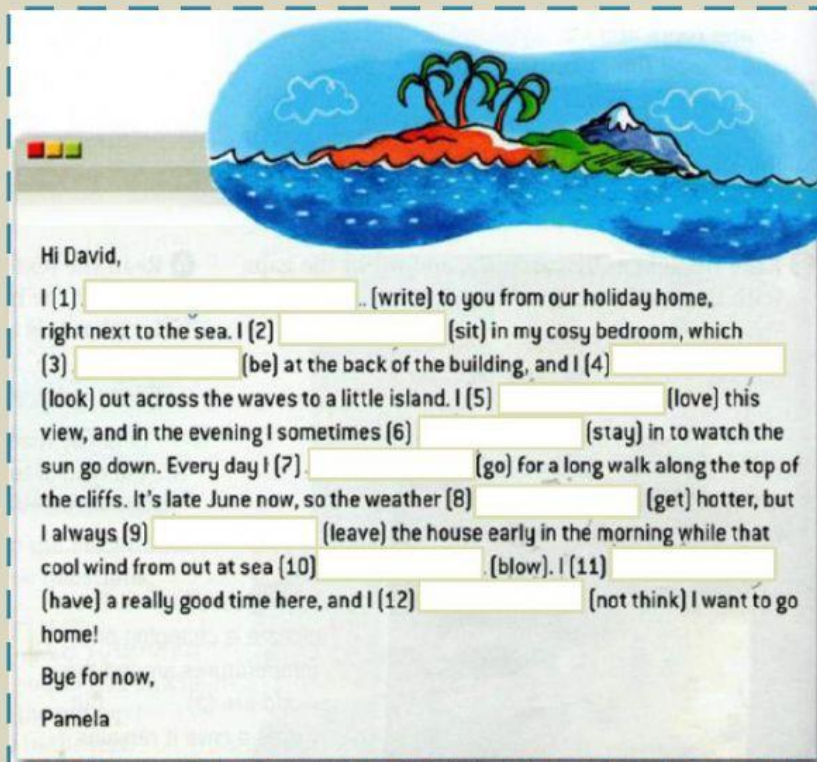 Hi David,
I (1) .. (write) to you from our holiday home,
right next to the sea. I (2) (sit) in my cosy bedroom, which
(3) (be) at the back of the building, and I (4)
(look) out across the waves to a little island. I (5) (love) this
view, and in the evening I sometimes (6) (stay) in to watch the
sun go down. Every day I (7) (go) for a long walk along the top of
the cliffs. It's late June now, so the weather (8) (get) hotter, but
I always (9) (leave) the house early in the morning while that
cool wind from out at sea (10) (blow). I (11)
(have) a really good time here, and I (12) (not think) I want to go
home!
Bye for now,
Pamela